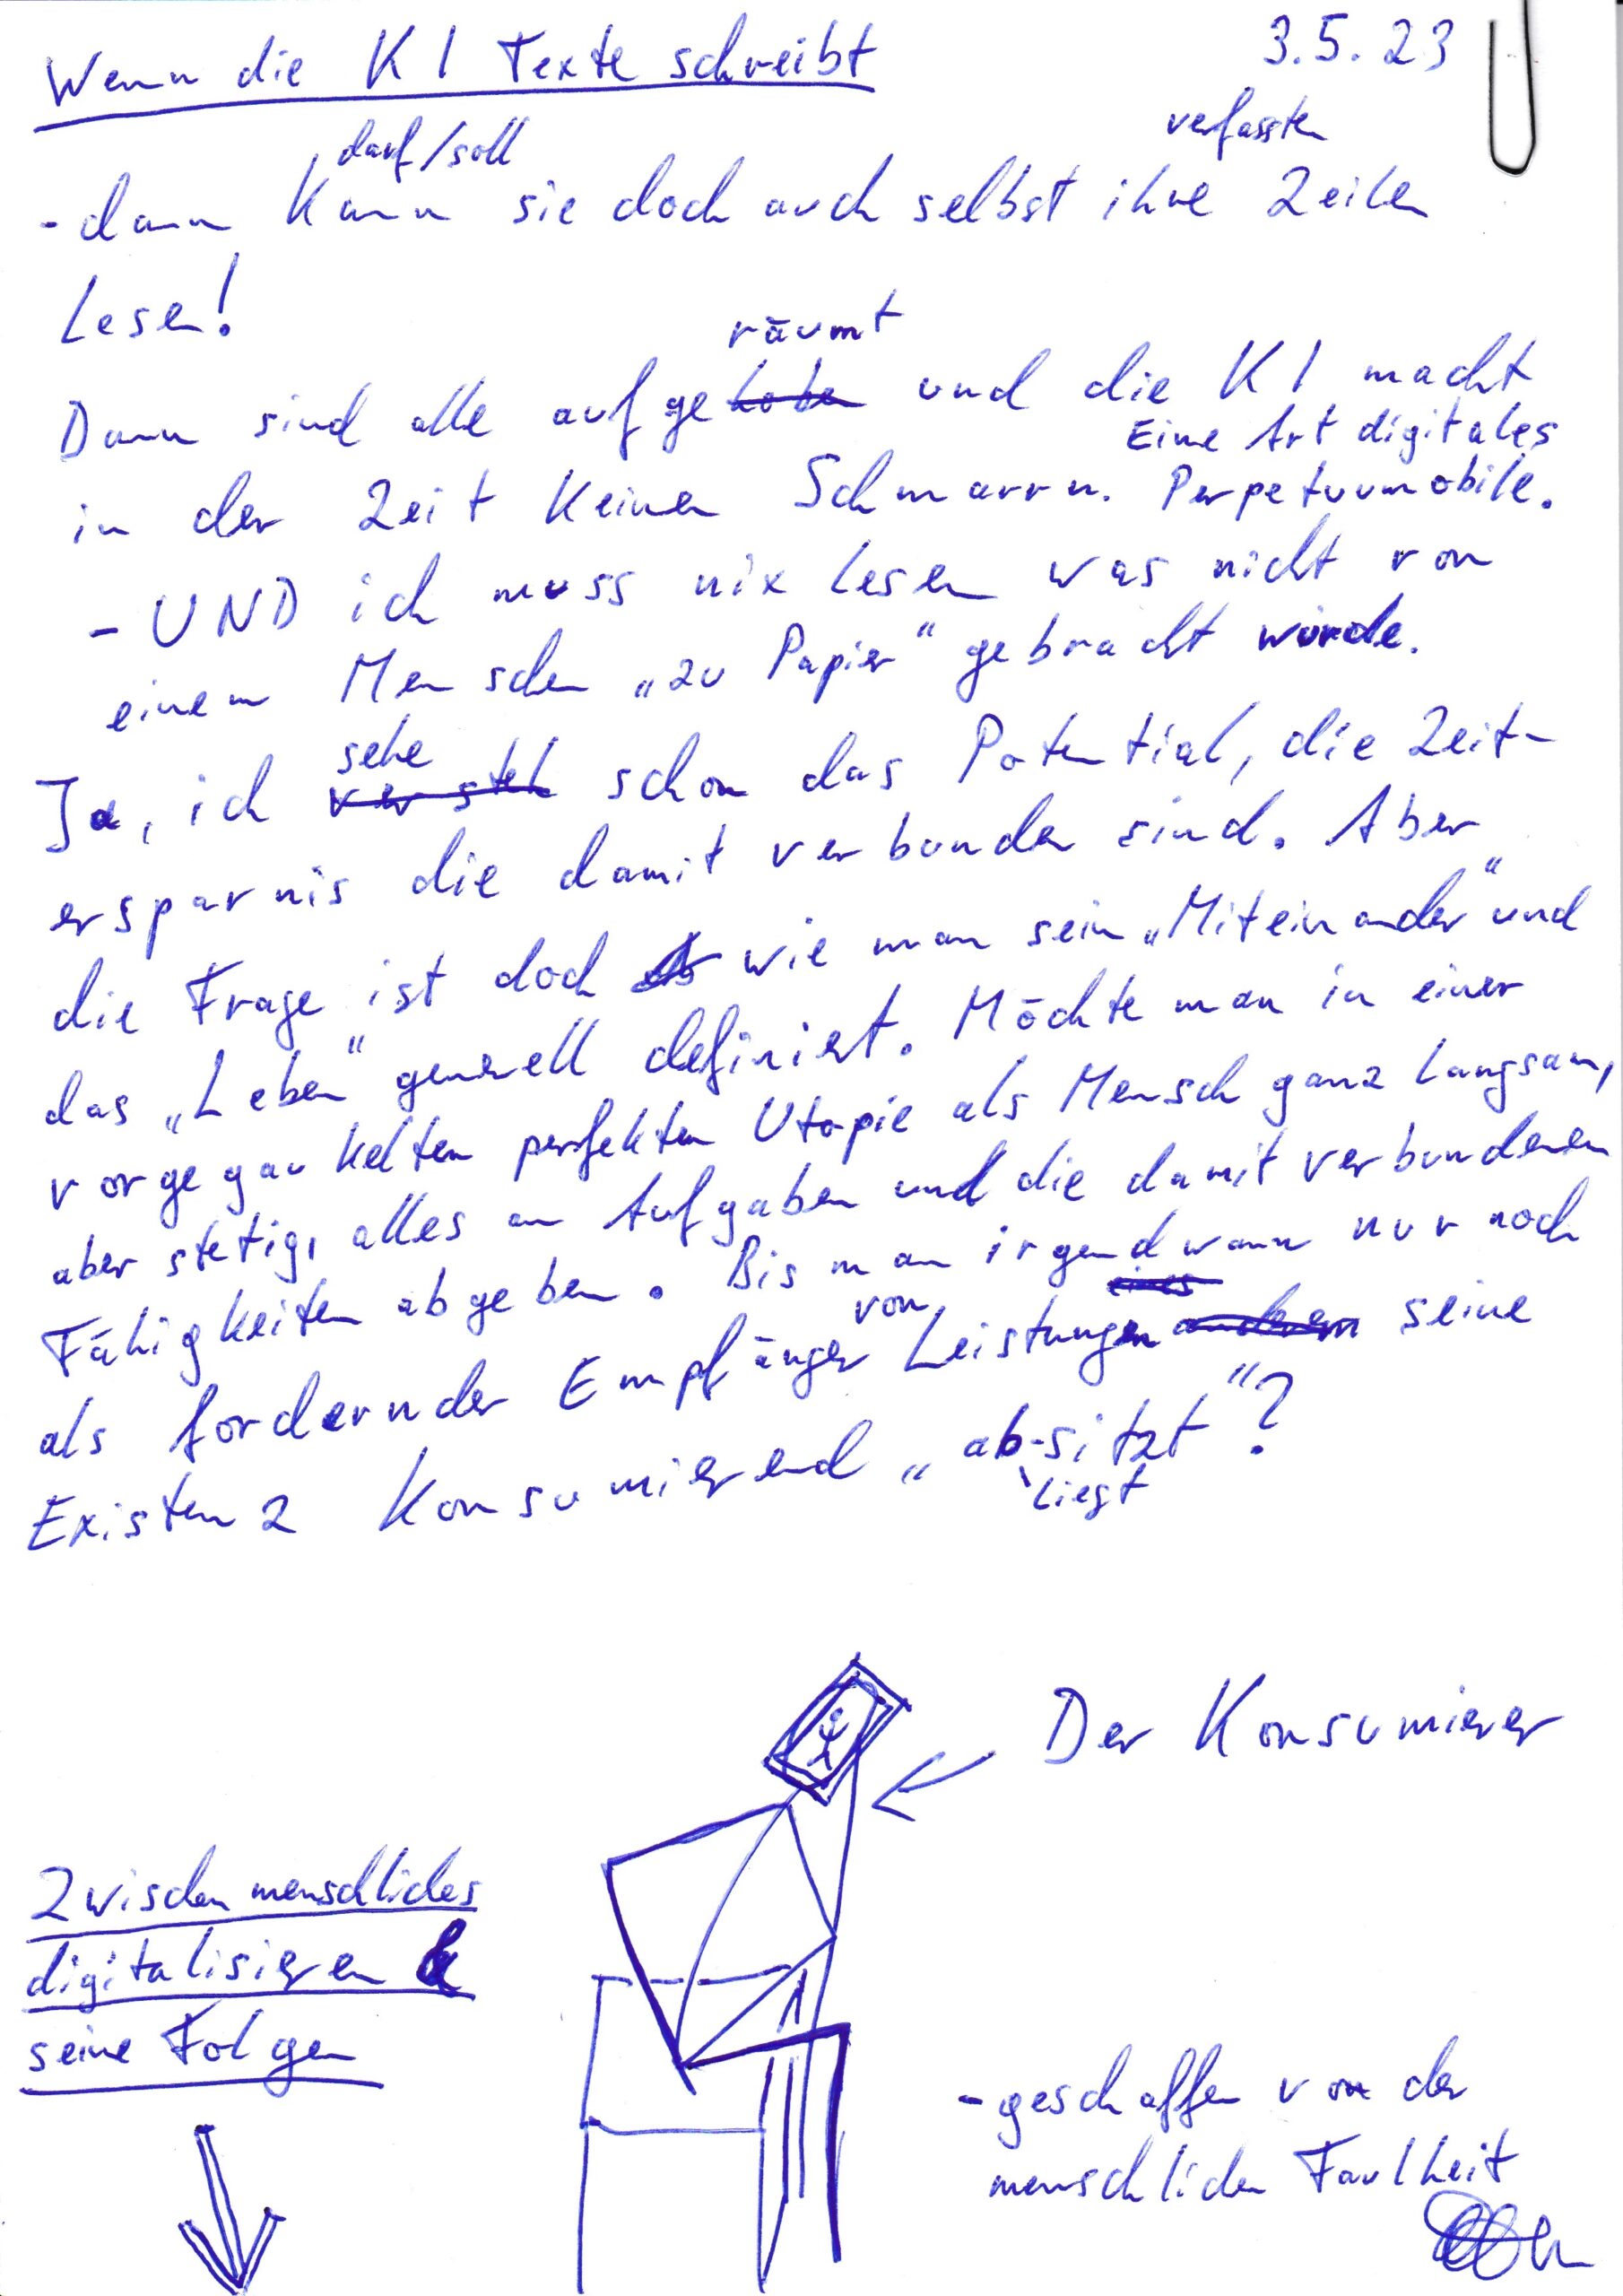 Wenn die KI Texte schreibt
3.5.23
darf/soll
verfassten
-dann kann sie doch auch selbst ihre Zeilen
lesen!
räumt
Dann sind alle aufgehoben und die KI macht
Eine Art digitales
in der Zeit keinen Schmarrn. Perpetuumobile.
- UND ich muss nix lesen was nicht von
einem Menschen „zu Papier" gebracht wurde.
sehe
Ja, ich versteh schon das Potential, die Zeit-
ersparnis die damit verbunden sind. Aber
die Frage ist doch wie man sein „Miteinander" und
das „Leben" generell definiert. Möchte man in einer
vorgegaukelten perfekten Utopie als Mensch ganz langsam,
aber stetig, alles an Aufgaben und die damit verbundenen
Fähigkeiten abgeben. Bis man irgendwann nur noch
von eines
als fordernder Empfänger Leistungen anderen seine
Existenz konsumierend „ab-sitzt"?
liegt
Der Konsumierer
Zwischenmenschliches
digitalisieren &
seine Folgen
-geschaffen von der
menschlichen Faulheit